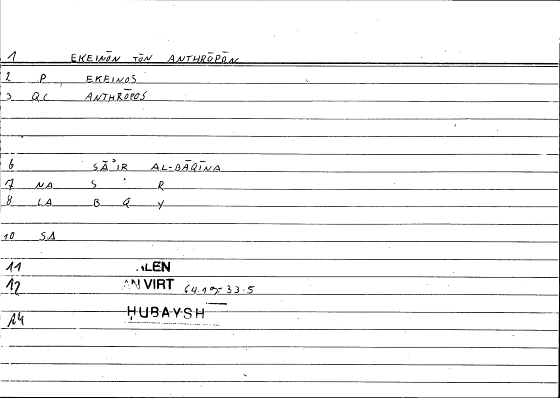 1 EKEINŌN TŌN ANTHRŌPŌN
2 P EKEINOS
3 QC ANTHRŌPOS
6 SĀʾIR AL-BĀQĪNA
7 NA S ʾ R
8 LA B Q Y
10 SA
11 ALEN
12 AN VIRT 64.15-33.5
14 ḤUBAYSH